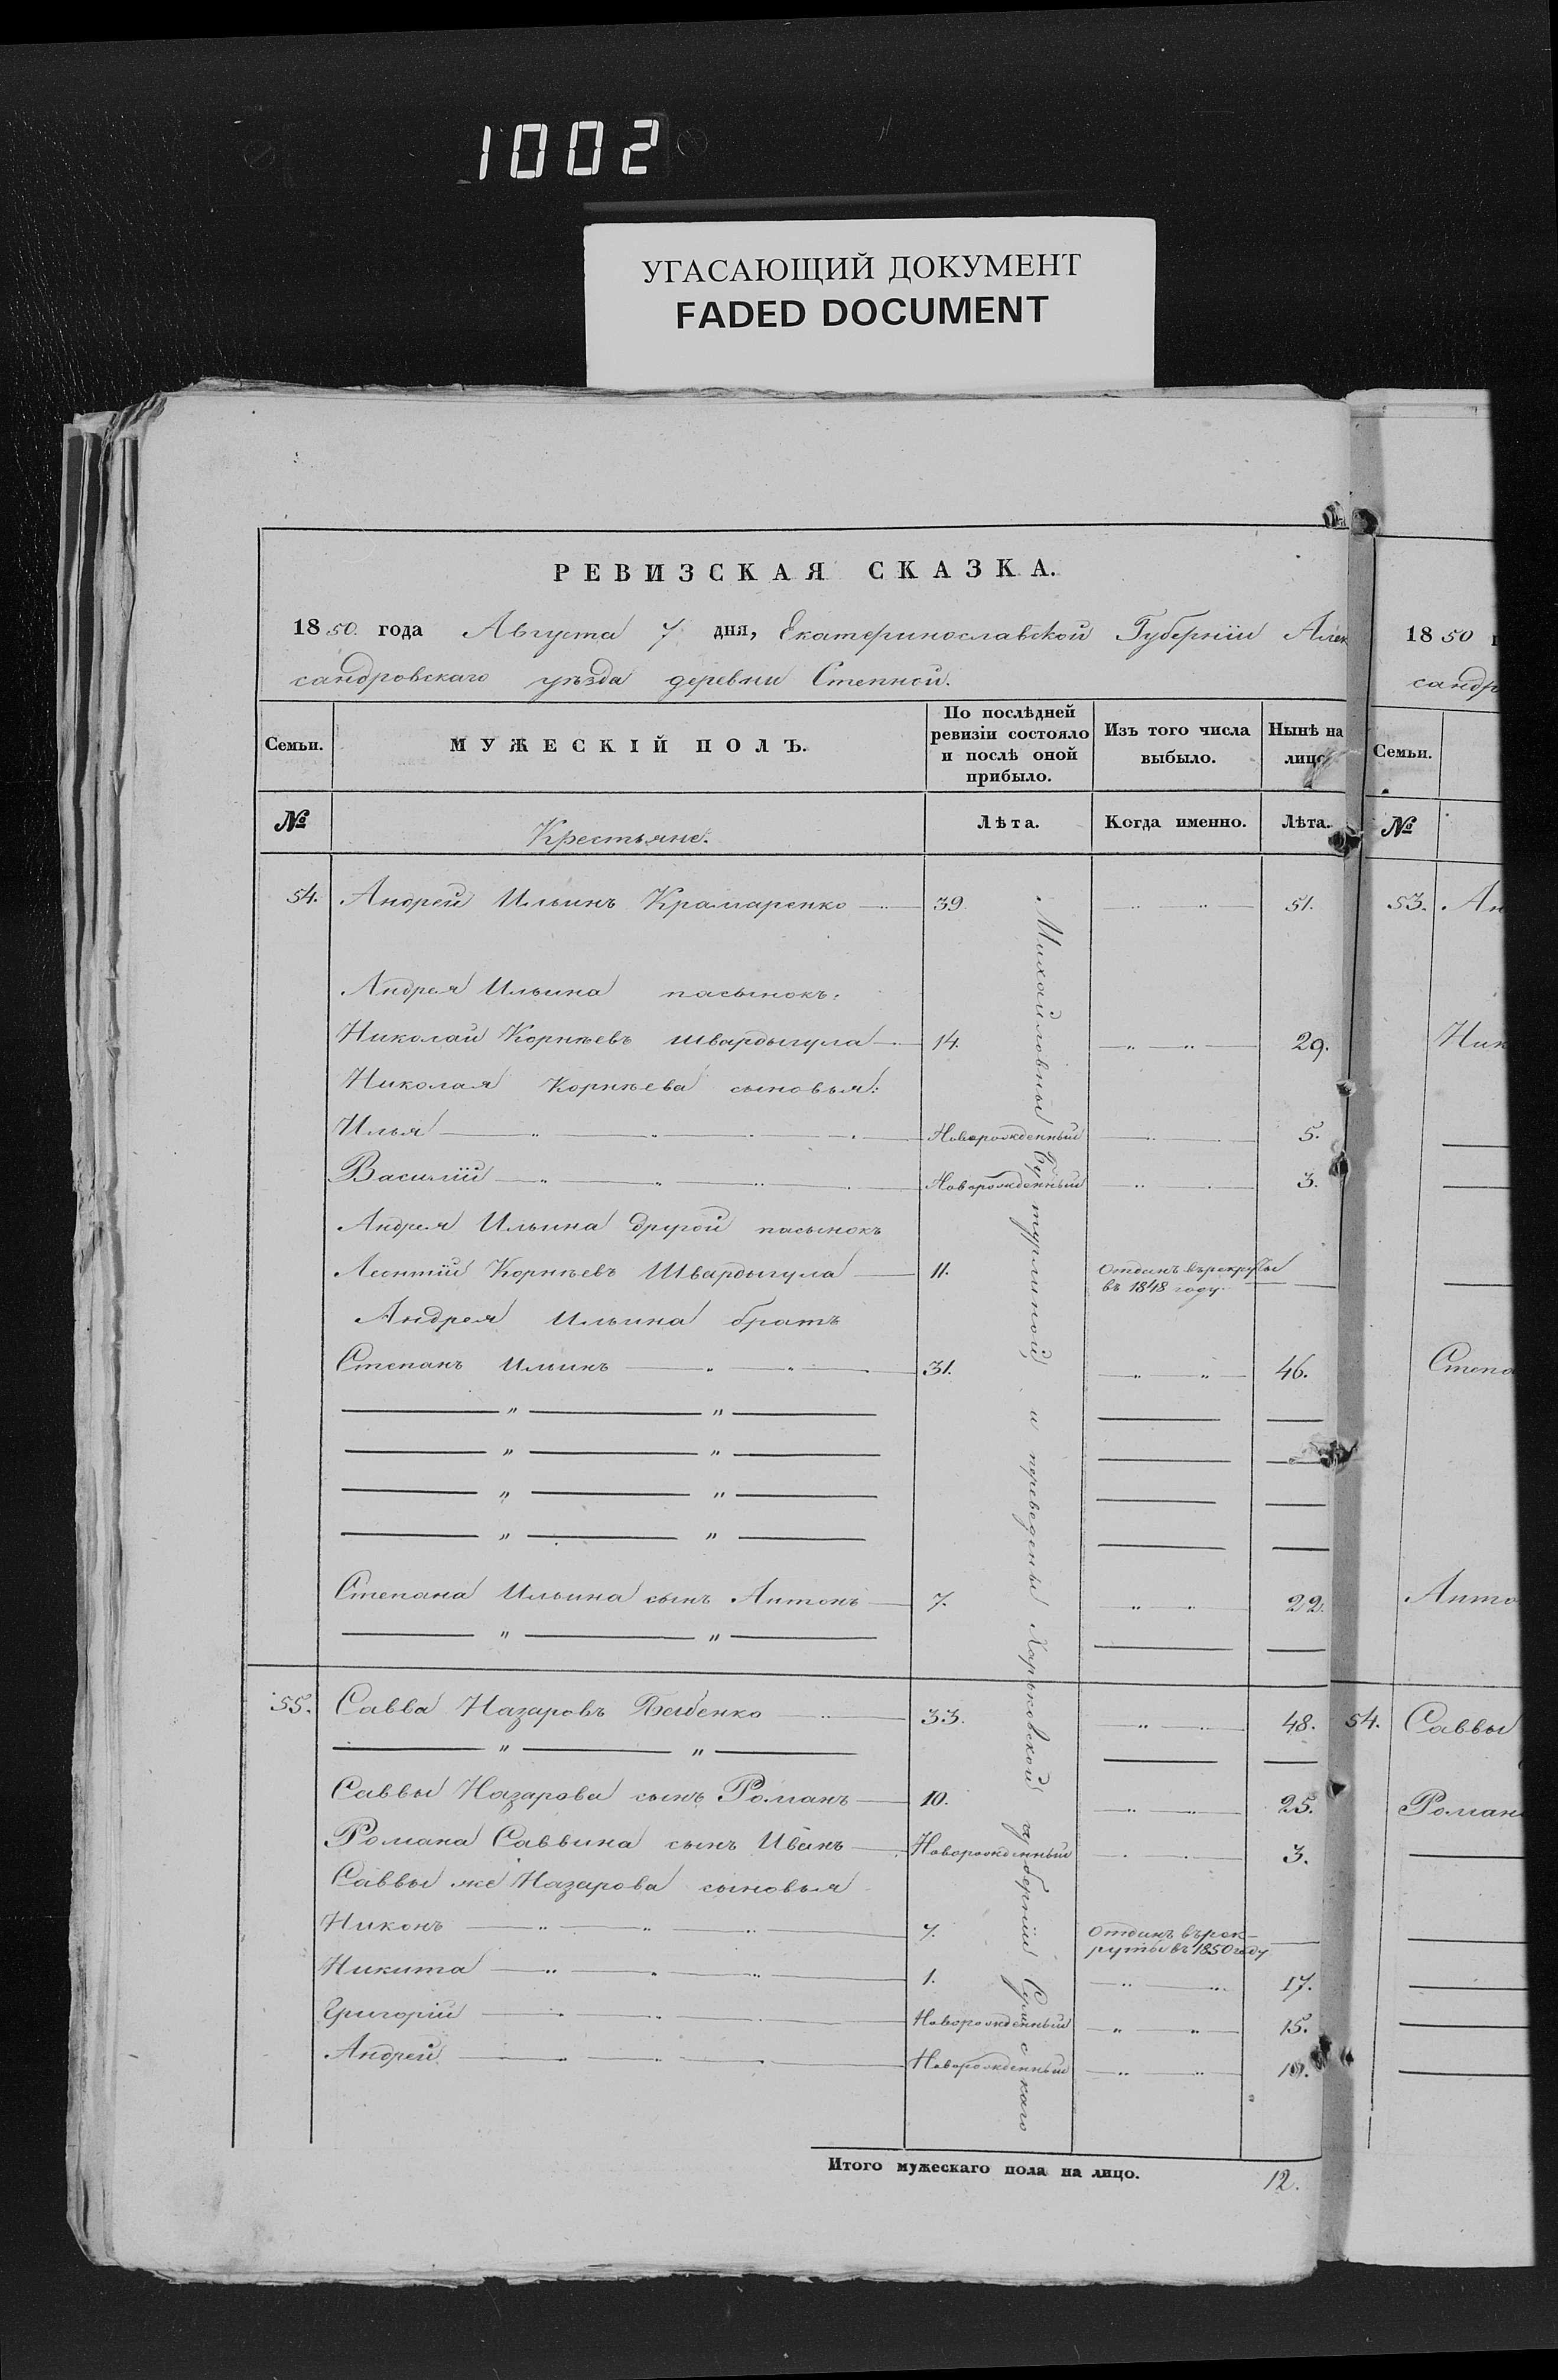 1002
УГАСАЮЩИЙ ДОКУМЕНТ
FADED DOCUMENT
РЕВИЗСКАЯ СКАЗКА.
1850. года Августа 7 дня, Екатеринославской Губерніи Алек
сандровскаго уѣзда деревни Степной.
Семьи. МУЖЕСКІЙ ПОЛЪ. По послѣдней ревизіи состояло и послѣ оной прибыло. Изъ того числа выбыло. Нынѣ на лицо
№ Крестьяне. Лѣта. Когда именно. Лѣта.
54. Андрей Ильинъ Крамаренко 39. 51.
Андрея Ильина пасынокъ:
Николай Корнѣевъ Швардыгула 14. 29.
Николая Корнѣева сыновья:
Илья Новорожденный 5.
Василій Новорожденный 3.
Андрея Ильина другой пасынокъ
Леонтій Корнѣевъ Швардыгула 11. Отданъ въ рекруты
въ 1848 году.
Андрея Ильина братъ
Степанъ Ильинъ 31. 46.
Степана Ильина сынъ Антонъ 7. 22.
55. Савва Назаровъ 33. 48.
Саввы Назарова сынъ Романъ 10. 25.
Романа Саввина сынъ Иванъ Новорожденный 3.
Саввы же Назарова сыновья
Никонъ 7. Отданъ въ рек-
руты въ 1850 году
Никита 1. 17.
Григорій Новорожденный 15.
Андрей Новорожденный
Михайловны Бутурлиной, и переведены Харьковской губерніи Сумскаго
Итого мужескаго пола на лицо. 12.
1850 г
сандр
Семьи.
№
53. Ан
Ник
Степа
Анто
54. Саввы
Роман